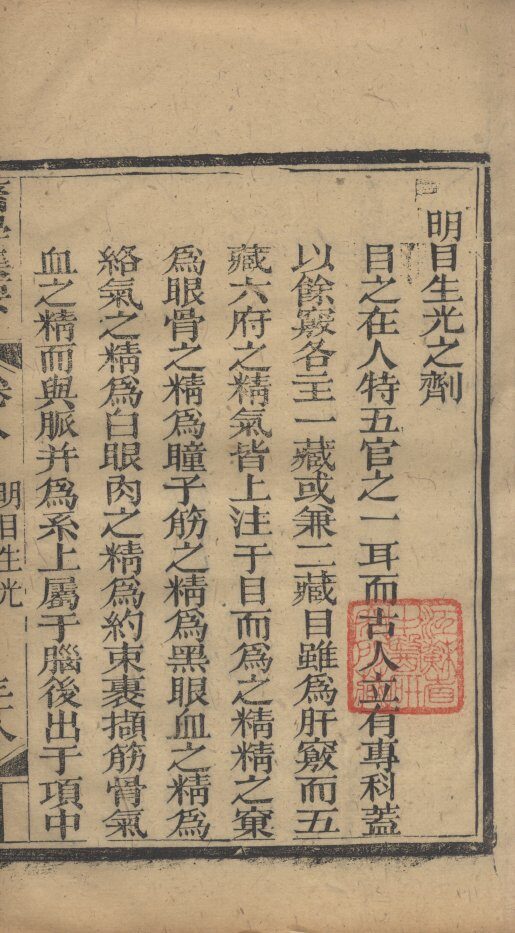 明目生光之劑
目之在人特五官之一耳而古人立有專科蓋
以餘竅各主一藏或兼二藏目雖爲肝竅而五
藏六府之精氣皆上注于目而爲之精精之窠
爲眼骨之精爲瞳子筋之精爲黑眼血之精爲
絡氣之精爲白眼肉之精爲約束裹擷筋骨氣
血之精而與脈并爲系上屬于腦後出于項中
卷八 明目生光
江蘇省